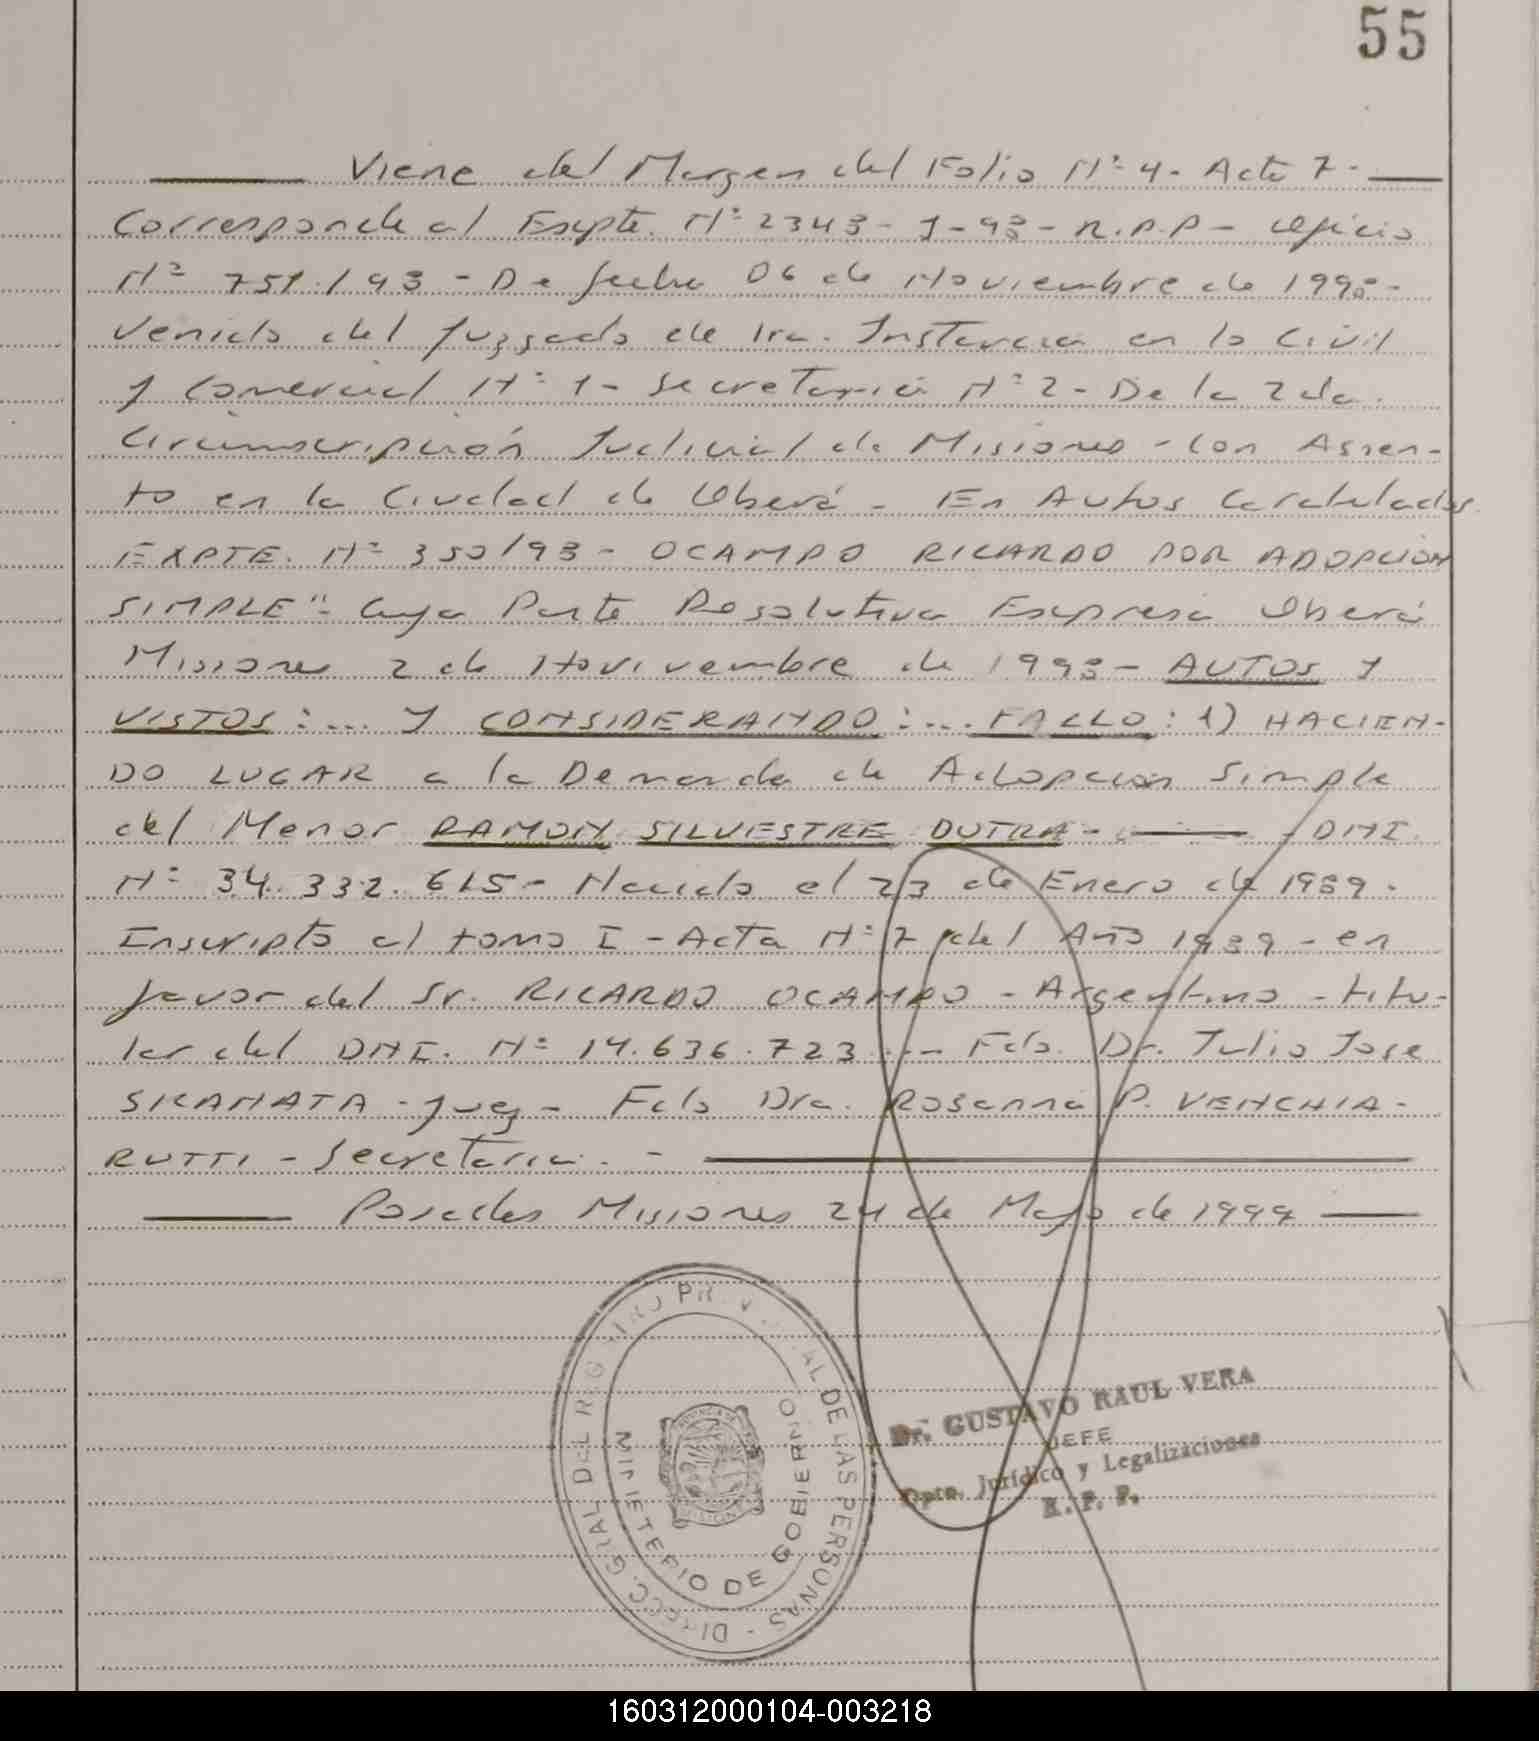 55
Viene del Margen del Folio Nº 4 - Acta 7 -
Corresponde al Expte. Nº 2343 - Y - 93 - R.P.P - Oficio
Nº 751/93 - De fecha 06 de Noviembre de 1993 -
Venido del Juzgado de 1ra. Instancia en lo Civil
y Comercial Nº 1 - Secretaria Nº 2 - De la 2da.
Circunscripción Judicial de Misiones - Con Asien-
to en la Ciudad de Oberá - En Autos Caratulados
EXPTE. Nº 350/93 - OCAMPO RICARDO POR ADOPCION
SIMPLE" - Cuya Parte Resolutiva Expresa Oberá
Misiones 2 de Novivembre de 1993 - AUTOS Y
VISTOS: ... Y CONSIDERANDO: ... FALLO: 1) HACIEN-
DO LUGAR a la Demanda de Adopcion Simple
del Menor RAMON SILVESTRE DUTRA - - DNI
Nº 34.332.615 - Nacido el 23 de Enero de 1989 -
Inscripto al tomo I - Acta Nº 7 del Año 1989 - en
favor del Sr. RICARDO OCAMPO - Argentino - titu-
lar del DNI. Nº 14.636.723 ... - Fdo. Dr. Julio Jose
SKANATA - Juez - Fdo Dra. Rosanna P. VENCHIA-
RUTTI - Secretaria. -
Posadas Misiones 24 de Mayo de 1994
DIRECC. GRAL DEL REG PROVINCIAL DE LAS PERSONAS -
MINISTERIO DE GOBIERNO
PROVINCIA DE
MISIONES
Dr. GUSTAVO RAUL VERA
JEFE
Dpto. Jurídico y Legalizaciones
R. P. P.
160312000104-003218